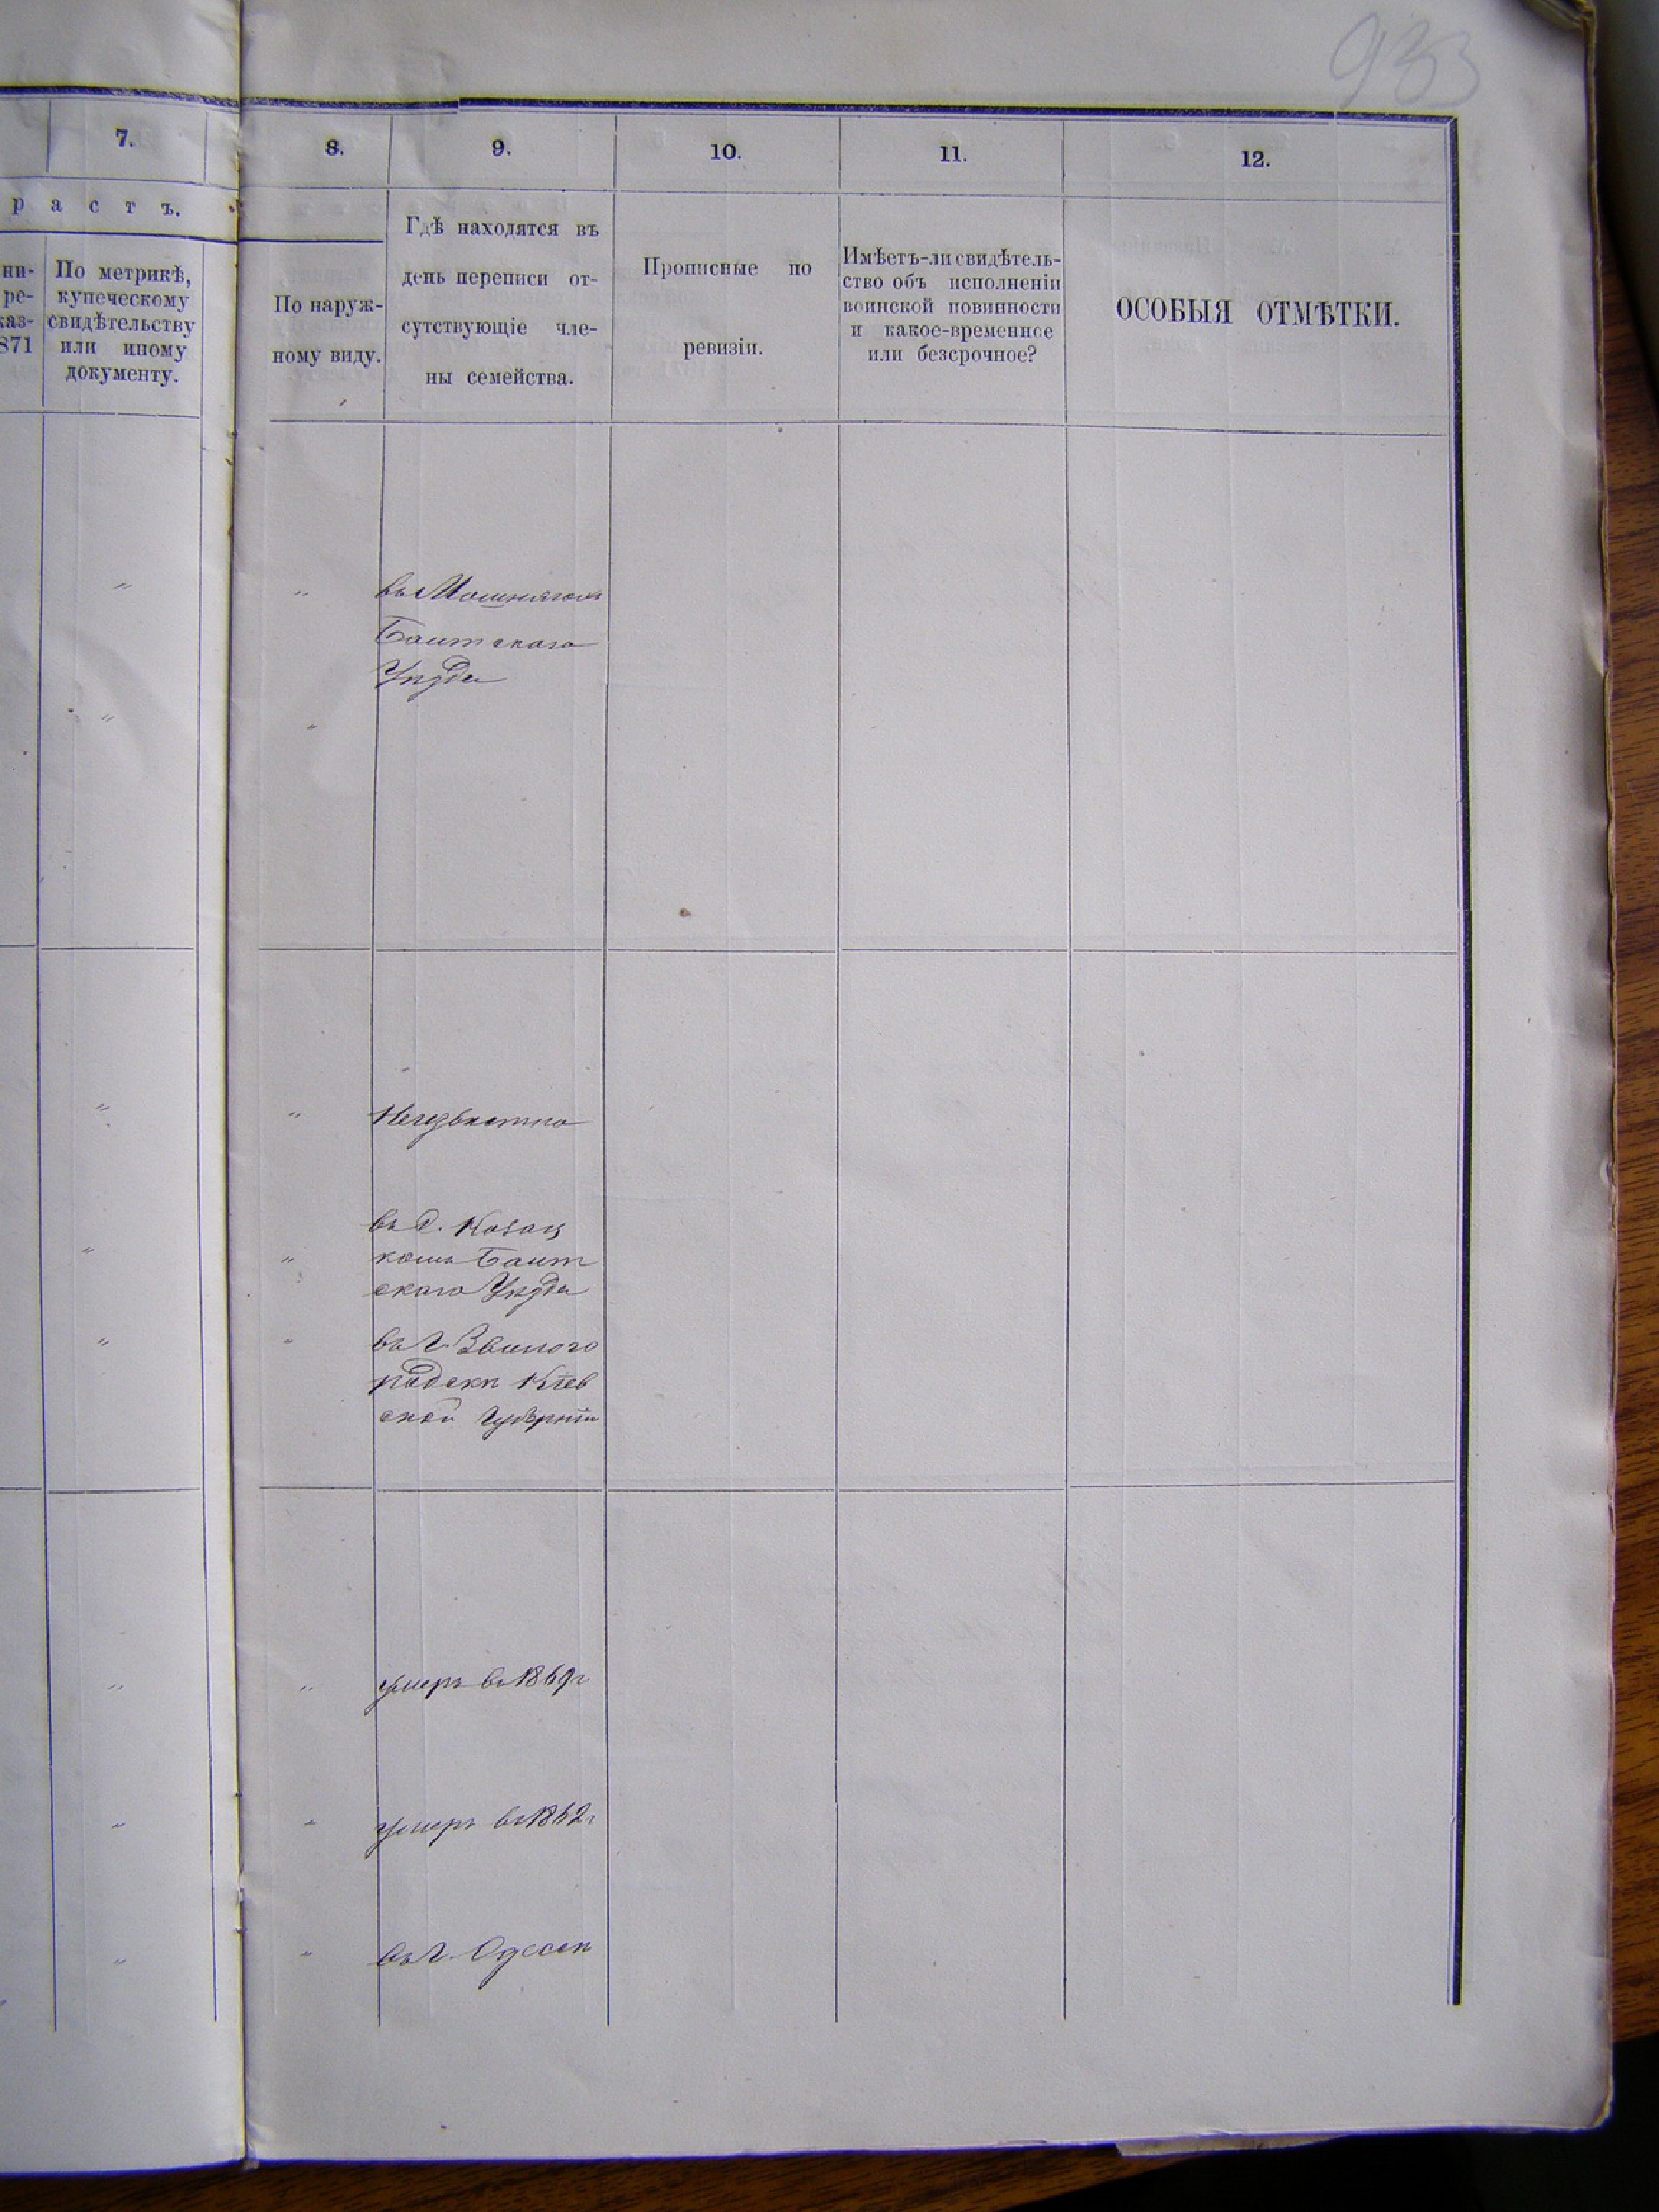 933
7.
8.
9.
10.
11.
12.
р а с т ъ.
ни-
ре-
каз-
871
По метрикѣ,
купеческому
свидѣтельству
или иному
документу.
По наруж-
ному виду.
Гдѣ находятся въ
день переписи от-
сутствующіе чле-
ны семейства.
Прописные по
ревизіи.
Имѣетъ-ли свидѣтель-
ство объ исполненіи
воинской повинности
и какое-временное
или безсрочное?
ОСОБЫЯ ОТМѢТКИ.
" " въ Мошнягахъ
Балтскаго
Уѣзда
" "
" " Неизвѣстно
въ д. Козац
" " комъ Балт
скаго Уѣзда
" " въ г. Звиного
родскѣ Кіев
ской Губерніи
" " умеръ въ 1869 г
" " умеръ въ 1862 г
" " въ г. Одессѣ